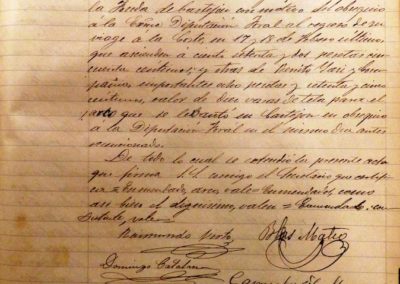 la Tienda de Castejon con motivo del obsequio
á la Excma Diputación Foral al regreso de su
viage á la Corte, en 17 y 18 de Febrero último,
que ascienden á ciento setenta y dos pesetas cin-
cuenta centimos; y otras de Benito
importantes ochos pesetas y setenta y cinco
centimos, valor de dos varas de tela para el
arco que se levantó en Castejon en obsequio
a la Diputación Foral en el mismo dia antes
mencionado.
De todo lo cual se extendió la presente acta
que firma S.S. conmigo el Secretario que certifica
= Enmendado, arco, vale = Enmendados, como
asi bien el vale = Enmendado
vale
Raimundo Blas Mateo
Domingo Catalan